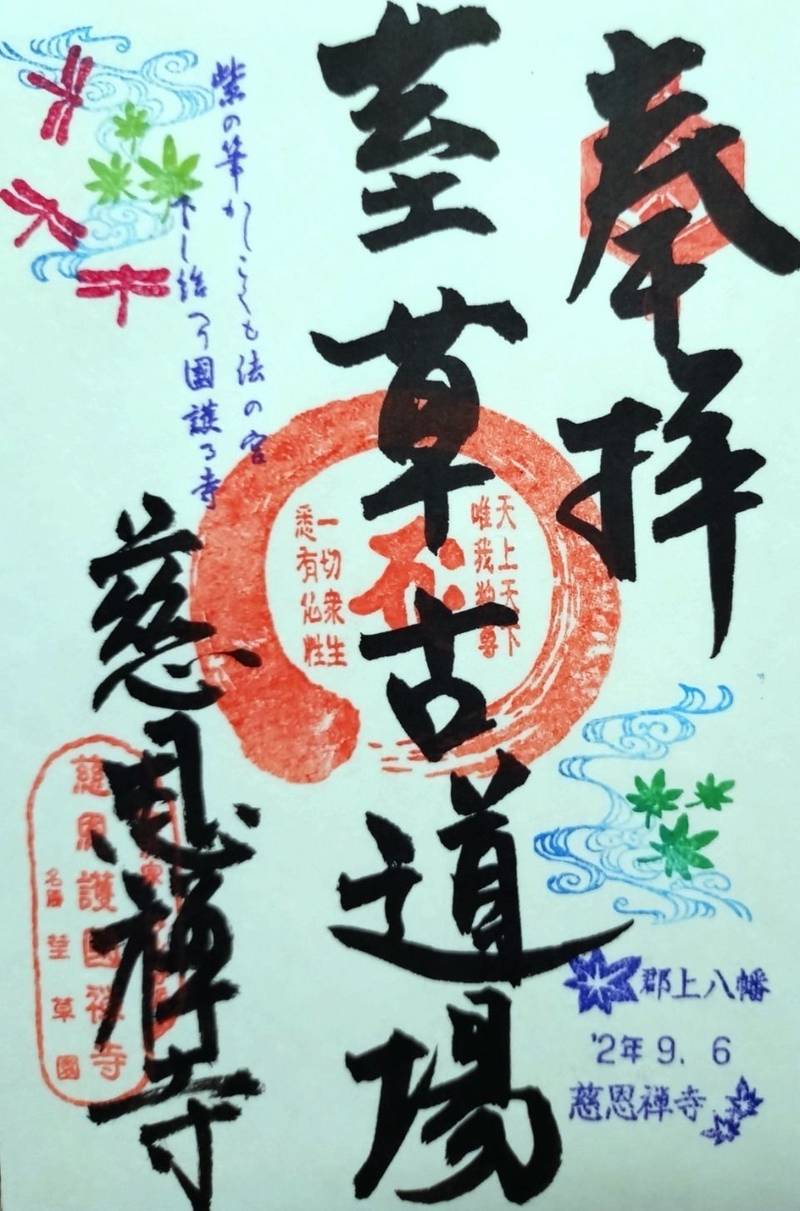 奉拝
荎草古道場
慈恩禅寺
紫の筆かしこくも法の宮
下し給へり國護る寺
天上天下
唯我独尊
一切衆生
悉有仏性
慈恩護國禅寺
名勝 荎草園
郡上八幡
'2年 9. 6
慈恩禅寺